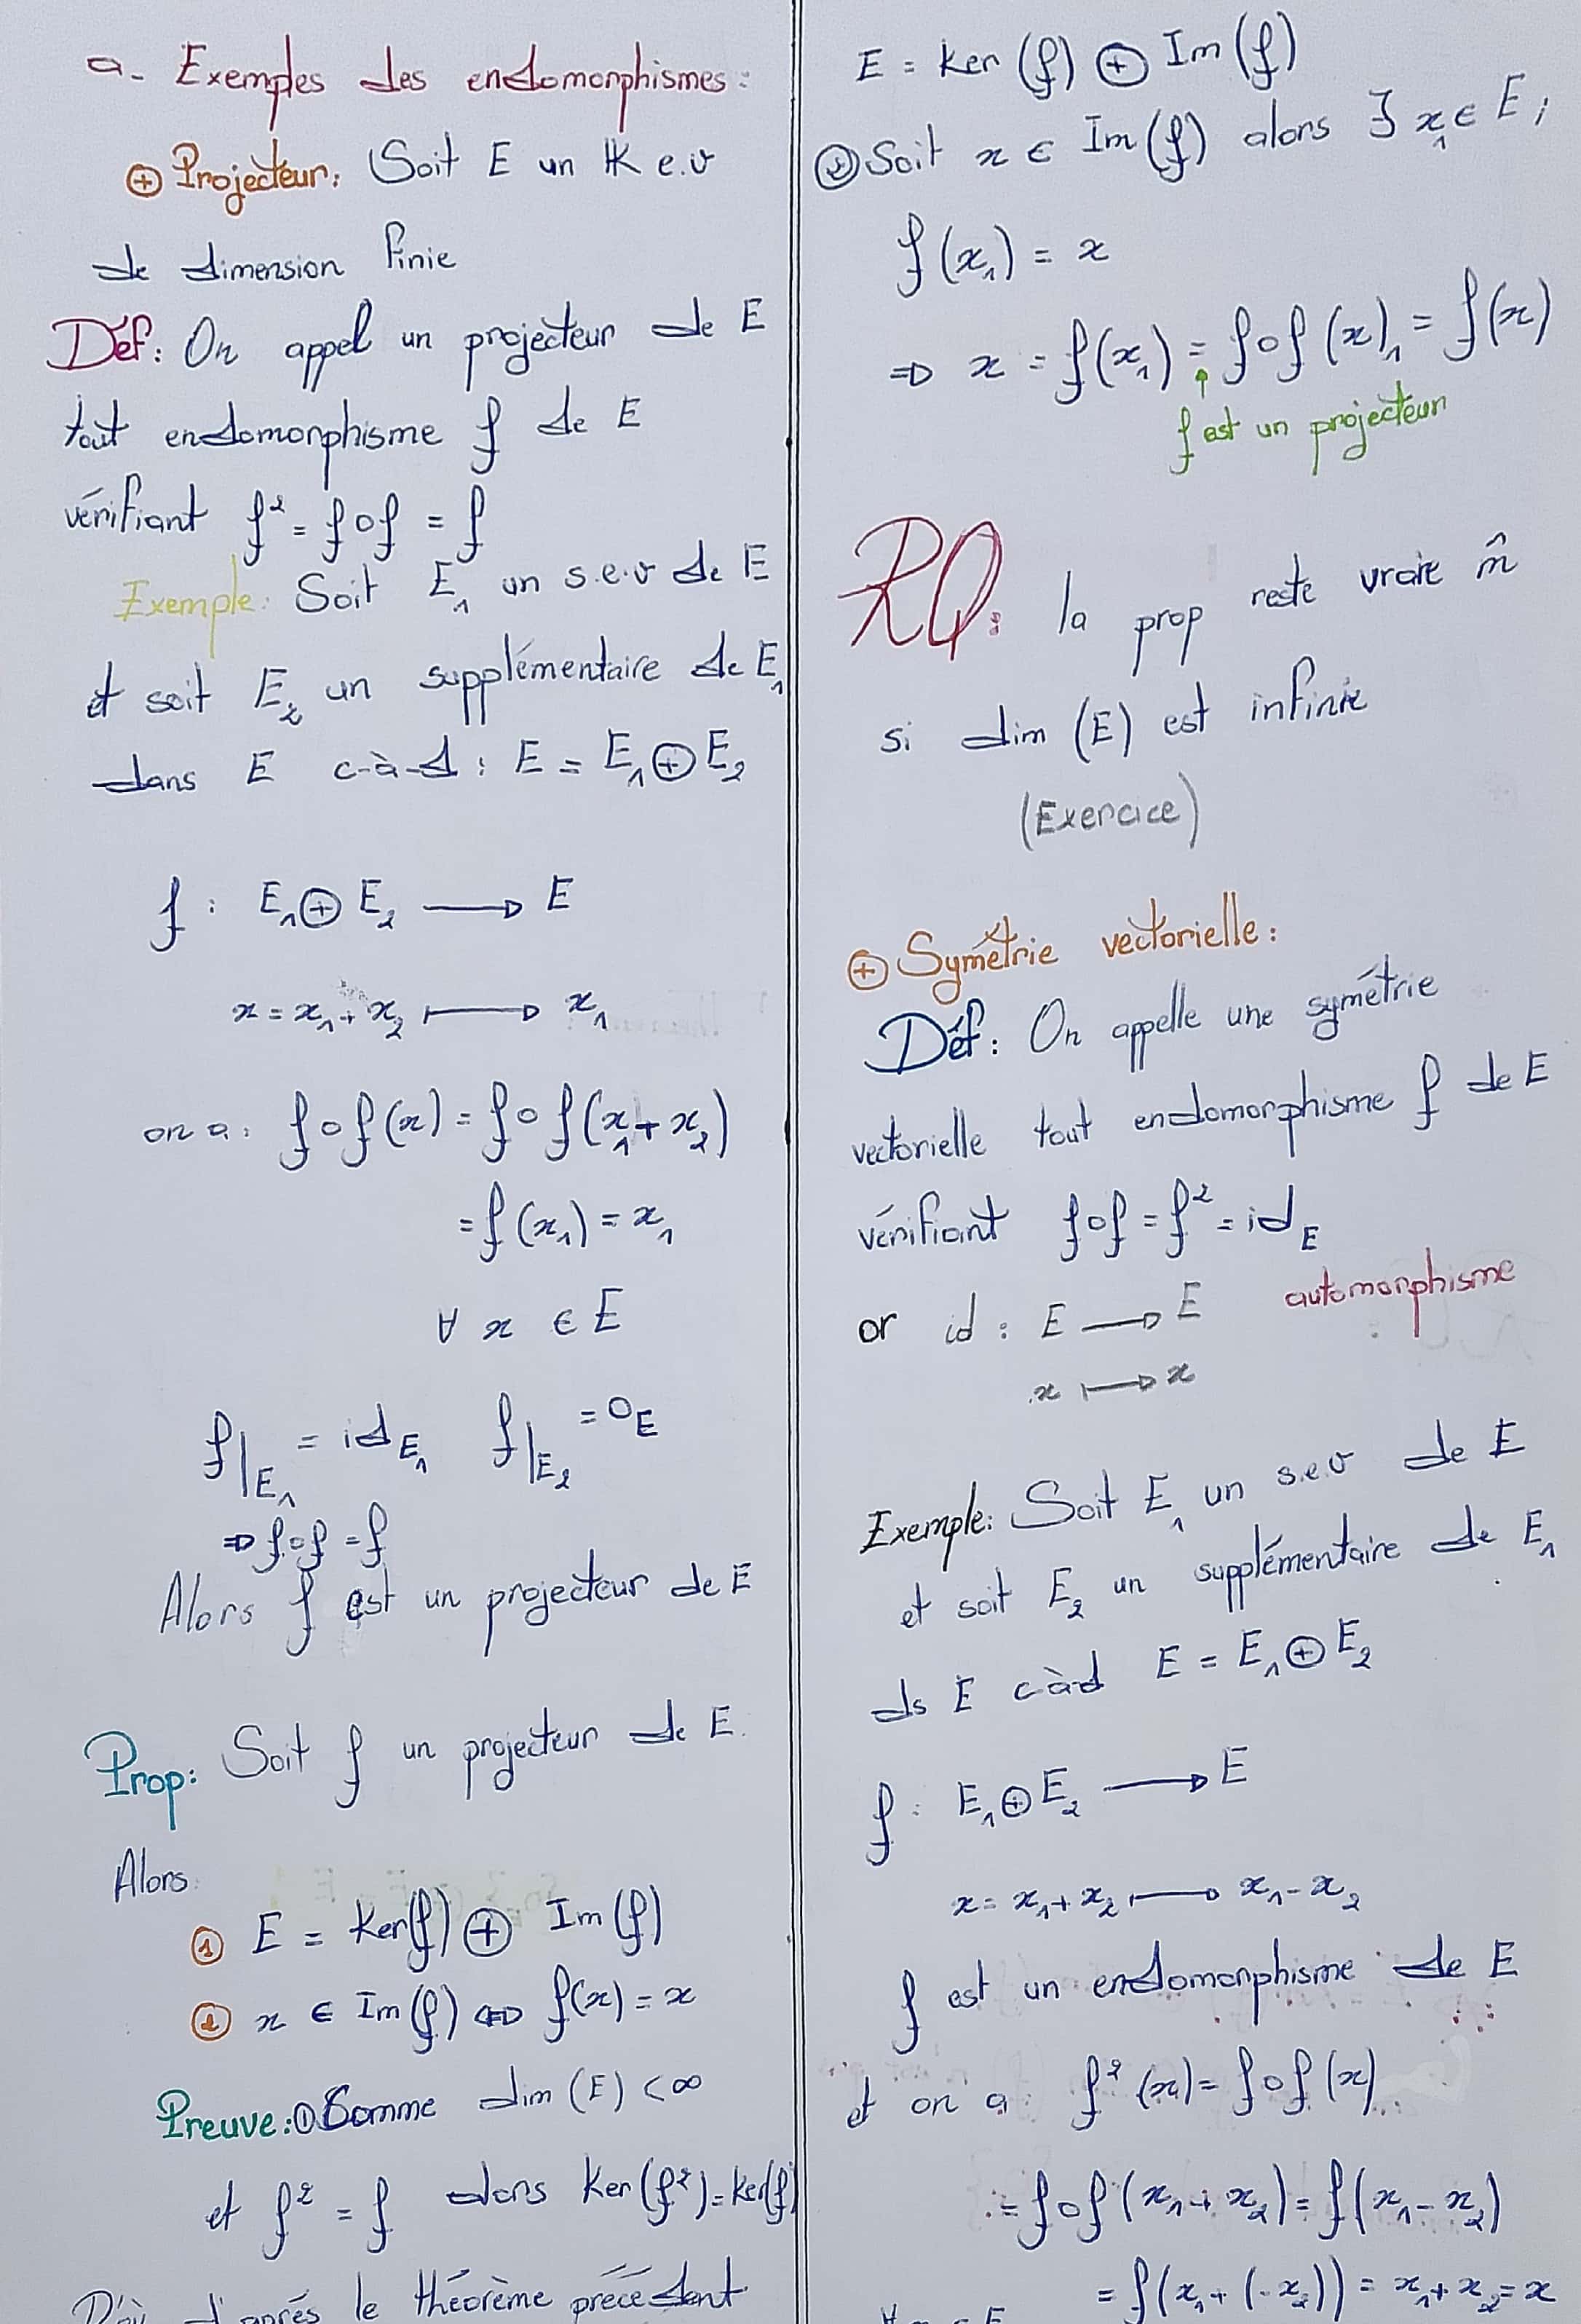 a- Exemples des endomorphismes :
⊕ Projecteur : Soit E un IK e.v
de dimension finie
Déf : On appel un projecteur de E
tout endomorphisme f de E
vérifiant f² = f∘f = f
Exemple : Soit E₁ un s.e.v de E
et soit E₂ un supplémentaire de E₁
dans E c-à-d : E = E₁ ⊕ E₂
f : E₁ ⊕ E₂ → E
x = x₁ + x₂ ↦ x₁
on a : f∘f(x) = f∘f(x₁ + x₂)
= f(x₁) = x₁
∀ x ∈ E
f|E₁ = id E₁ f|E₂ = 0E
⇒ f∘f = f
Alors f est un projecteur de E
Prop : Soit f un projecteur de E.
Alors
① E = Ker(f) ⊕ Im(f)
② x ∈ Im(f) ⇔ f(x) = x
Preuve : ① Comme dim (E) < ∞
et f² = f alors Ker(f²) = Ker(f)
D'où d'après le théorème précédent
E = Ker (f) ⊕ Im (f)
② Soit x ∈ Im(f) alors ∃ x₁ ∈ E ;
f(x₁) = x
⇒ x = f(x₁) = f∘f(x)₁ = f(x)
↑
f est un projecteur
RQ : la prop reste vraie m̂
si dim (E) est infinie
(Exercice)
⊕ Symétrie vectorielle :
Déf : On appelle une symétrie
vectorielle tout endomorphisme f de E
vérifiant f∘f = f² = id E
or id : E → E automorphisme
x ↦ x
Exemple : Soit E₁ un s.e.v de E
et soit E₂ un supplémentaire de E₁
ds E càd E = E₁ ⊕ E₂
f : E₁ ⊕ E₂ → E
x = x₁ + x₂ ↦ x₁ - x₂
f est un endomorphisme de E
et on a : f²(x) = f∘f(x)
= f∘f(x₁ + x₂) = f(x₁ - x₂)
= f(x₁ + (-x₂)) = x₁ + x₂ = x